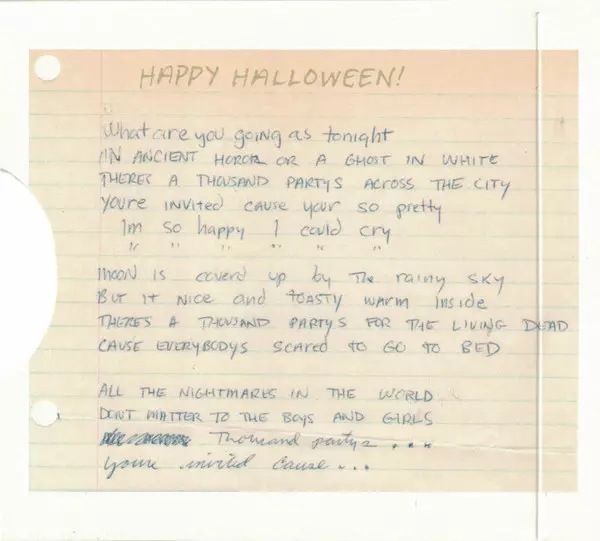 HAPPY HALLOWEEN!
What are you going as tonight
AN ANCIENT HOROR OR A GHOST IN WHITE
THERES A THOUSAND PARTYS ACROSS THE CITY
You're invited cause your so pretty
Im so happy I could cry
" " " " " "
MOON IS coverd up by The rainy sky
But it nice and toasty warm inside
THERES A THOUSAND PARTYS FOR THE LIVING DEAD
CAUSE EVERYBODYS SCARED TO GO TO BED
ALL THE NIGHTMARES IN THE WORLD
DONT MATTER TO THE BOYS AND GIRLS
Thousand partys ...
youre invited cause ...